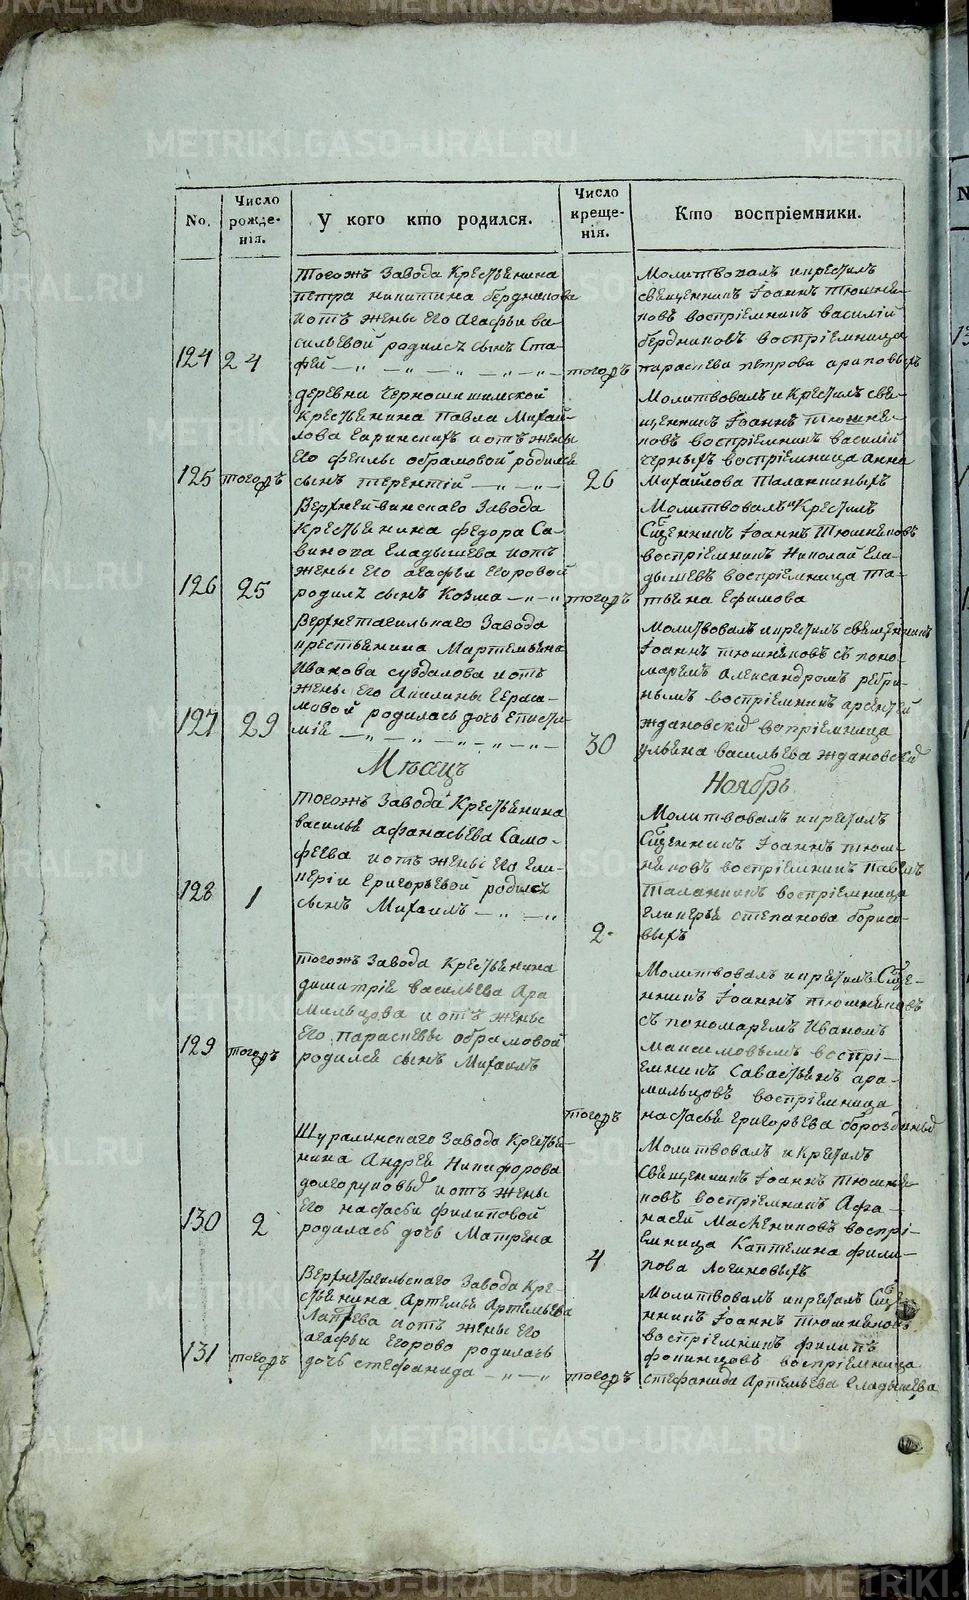 METRIKI.GASO-URAL.RU
No.
Число рожде-нія.
У кого кто родился.
Число креще-нія.
Кто воспріемники.
124
24
тогожъ завода крестьянина
петра никитина бердникова
иотъ жены его агафьи ва-
сильевой родилсъ сынъ Ста-
фей
тогожъ
Молитвовалъ икрестилъ
священникъ Iоаннъ тюшня-
ковъ воспріемникъ василій
бердниковъ воспріемница
параскева петрова араповыхъ
125
тогожъ
деревни Черношишимской
крестьянина Павла Михай-
лова иотъ жены
его феклы обрамовой родился
сынъ терентій
26
Молитвовалъ и Крестилъ свя-
щенникъ Iоаннъ тюшня-
ковъ воспріемникъ василій
черныхъ воспріемница анна
Михайлова Таланкиныхъ
126
25
Верхнейвинскаго Завода
крестьянина федора Са-
винова Гладышева иотъ
жены его агафьи Егоровой
родилъ сынъ Козма
тогожъ
Молитвовалъ и Крестилъ
Сщенникъ Iоаннъ Тюшняковъ
воспріемникъ Николай Гла-
дышевъ воспріемница та-
тьяна Ефимова
127
29
Верхнетагильнаго Завода
крестьянина Мартемьяна
Иванова суздалова иотъ
жены его Акилины Гераси-
мовой родилась дочь Еписти-
мія
30
Молитвовалъ икрестилъ священникъ
Iоаннъ тюшняковъ съ поно-
маремъ Александромъ ребри-
нымъ воспріемникъ арсентей
ждановскій вопріемница
ульяна васильева ждановский
Мѣсяцъ
Ноябрь
128
1
тогожъ Завода Крестьянина
василья афанасьева Само-
феева иотъ жены его Гли-
керіи Григорьевой родилсъ
сынъ Михаилъ
2
Молитвовалъ икрестилъ
Сщенникъ Iоаннъ тюш-
няковъ воспріемникъ Павелъ
Таланкинъ воспріемница
Гликерья степанова борисо-
выхъ
129
тогожъ
тогожъ Завода Крестьянина
димитрія васильева Ара
Мильцова иотъ жены
его параскевы обрамовой
родился сынъ Михаилъ
тогожъ
Молитвовалъ икрестилъ Сще-
нникъ Iоаннъ тюшняковъ
съ пономаремъ Иваномъ
Максимовымъ воспрі-
емникъ Савастьянъ ара-
мильцовъ воспріемница
настасья григорьева
130
2
Шуралинскаго Завода Крестья-
нина Андрея Никифорова
долгоруковый иотъ жены
его настасьи филиповой
родилась дочь Матрена
4
Молитвовалъ и Крестилъ
священникъ Iоаннъ тюшня-
ковъ воспріемникъ Афа-
насей Маслениковъ воспрі-
емница Каптелина фили-
пова Логиновыхъ
131
тогожъ
Верхнетагильскаго Завода Кре-
стьянина Артемья Артемьева
Лаптева иотъ жены его
агафьи Егорово родилась
дочь стефанида
тогожъ
Молитвовалъ икрестилъ Сще-
нникъ Iоаннъ тюшняковъ
воспріемникъ филипъ
фоминцовъ воспріемница
стефанида Артемьева гладышева